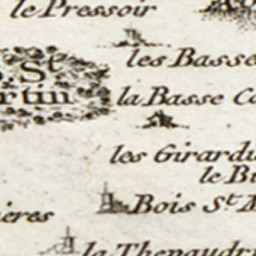 le Pressoir
les Basse
St
rtin
la Basse Co
les Girardi
le Bu
Bois St M
ières
la Thenaudr